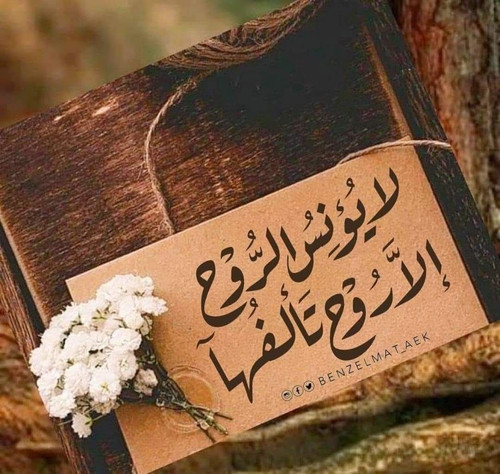 لا يُؤنِسُ الرُّوْح
إلاَّ رُوْح تَأْلفُهآ
BENZELMAT_AEK